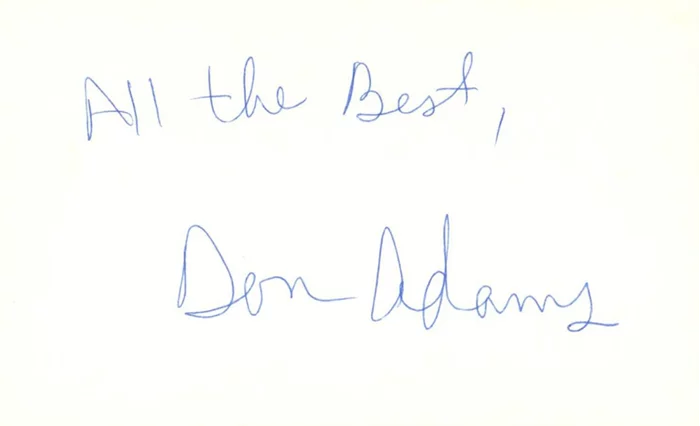 All the Best,
Don Adams